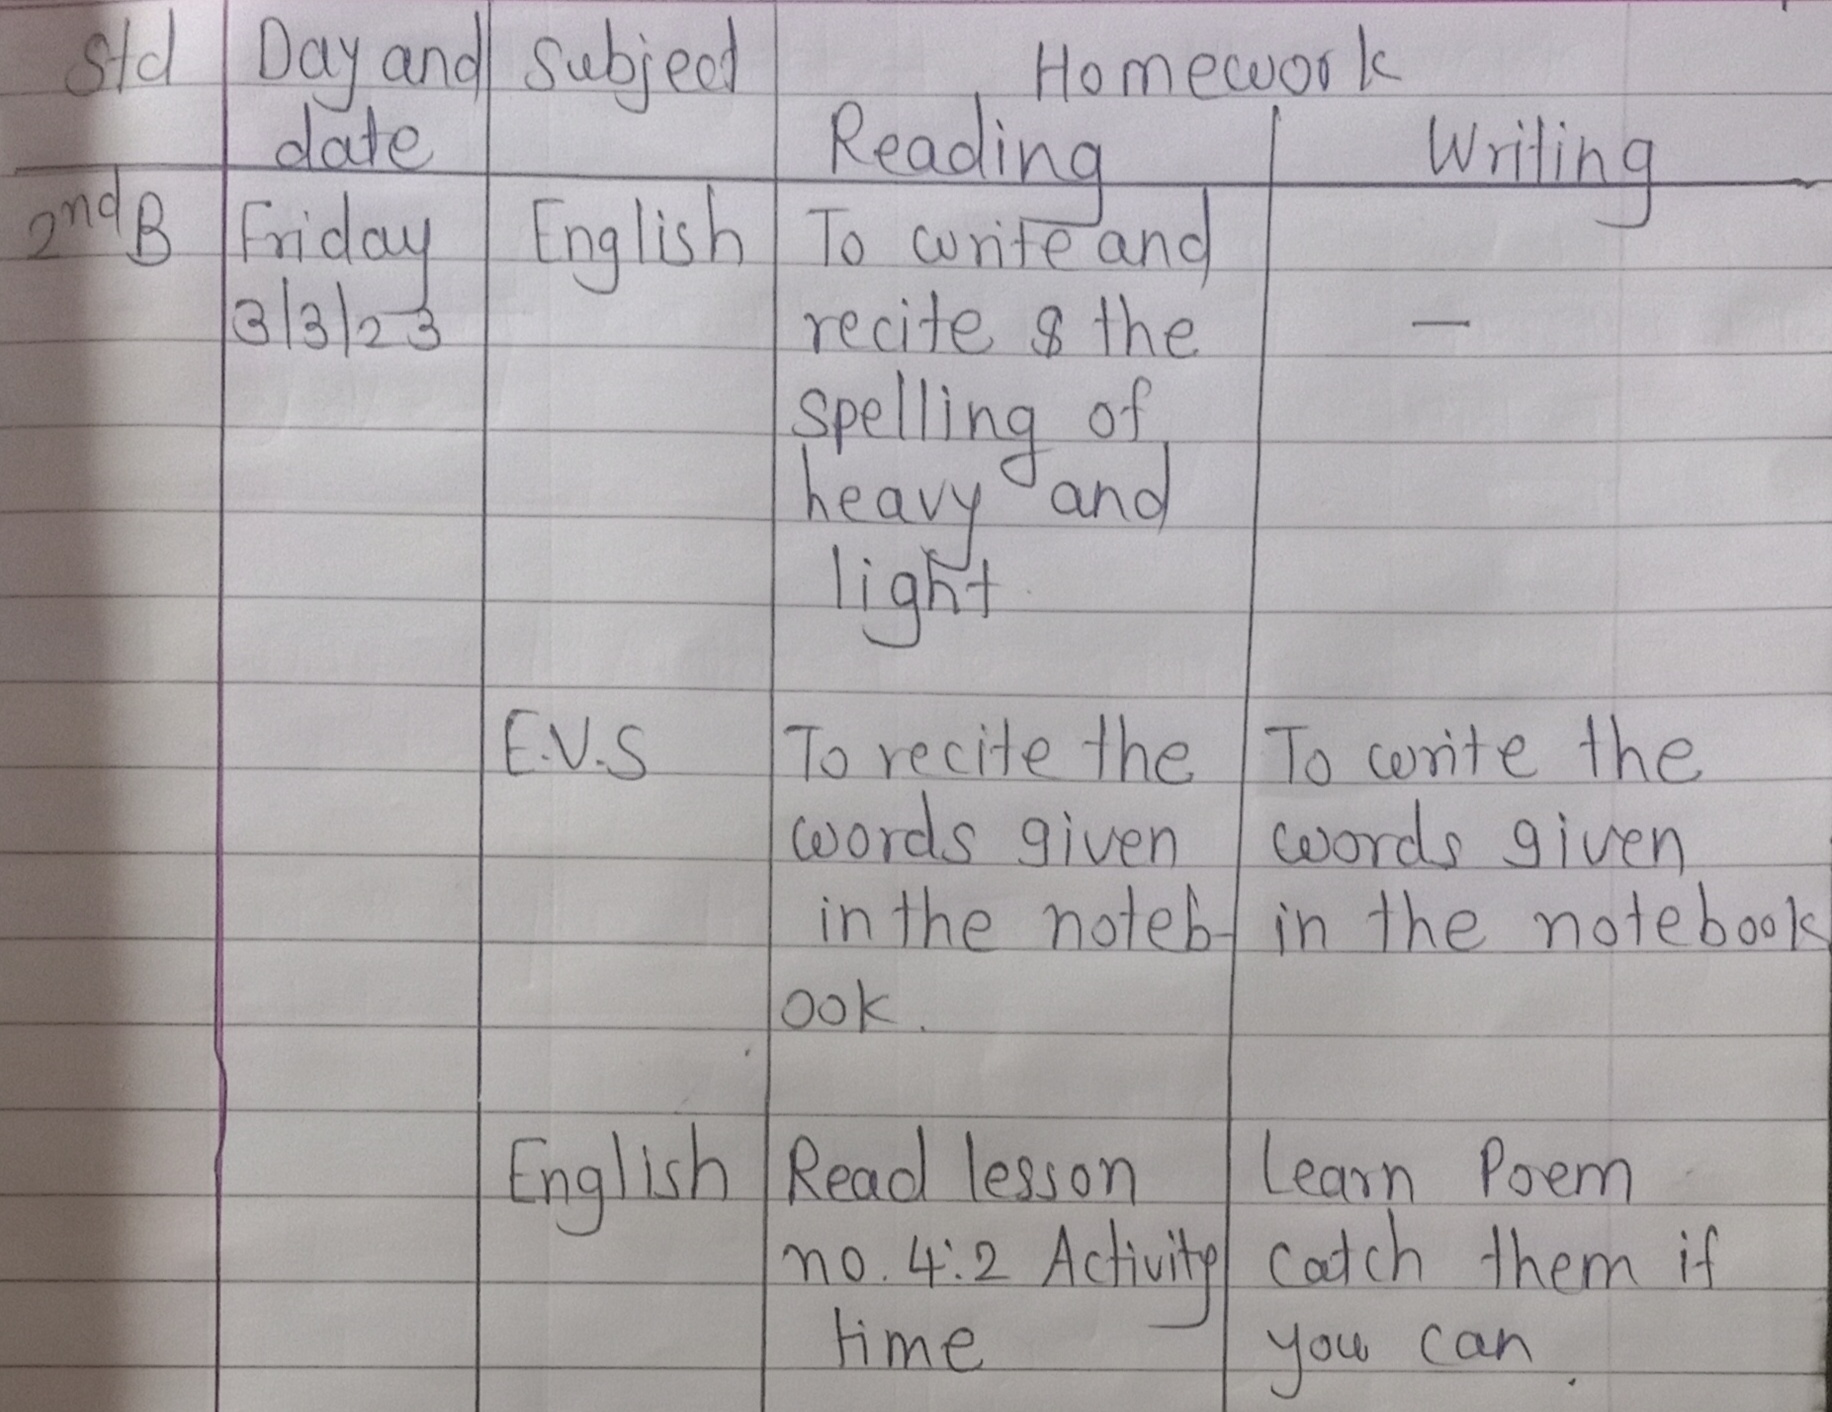 Std Day and Subject Homework
date Reading Writing
2nd B Friday English To write and
3/3/23 recite & the —
spelling of
heavy and
light
E.V.S To recite the To write the
words given words given
in the noteb- in the notebook
ook.
English Read lesson Learn Poem
no. 4:2 Activity catch them if
time you can.